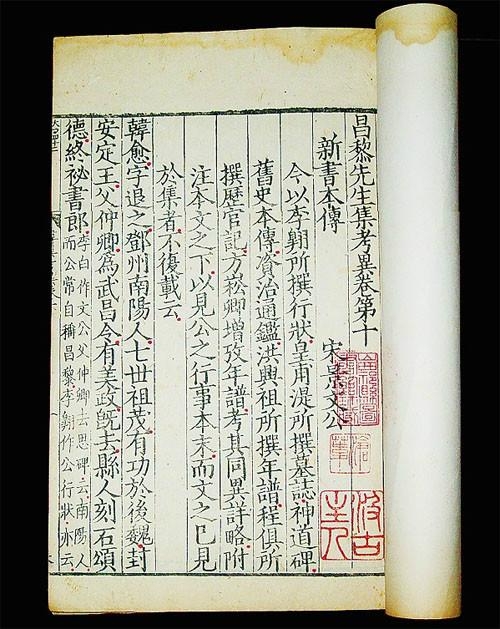 昌黎先生集考異卷第十
新書本傳
宋景文公
今以李翺所撰行狀皇甫湜所撰墓誌神道碑
舊史本傳資治通鑑洪興祖所撰年譜程俱所
撰歷官記方崧卿增攷年譜考其同異詳略附
注本文之下以見公之行事本末而文之已見
於集者不復載云
韓愈字退之鄧州南陽人七世祖茂有功於後魏封
安定王父仲卿爲武昌令有美政旣去縣人刻石頌
德終祕書郎
李白作文公父仲卿去思碑云南陽人
而公常自稱昌黎李翺作公行狀亦云
汲古
主人